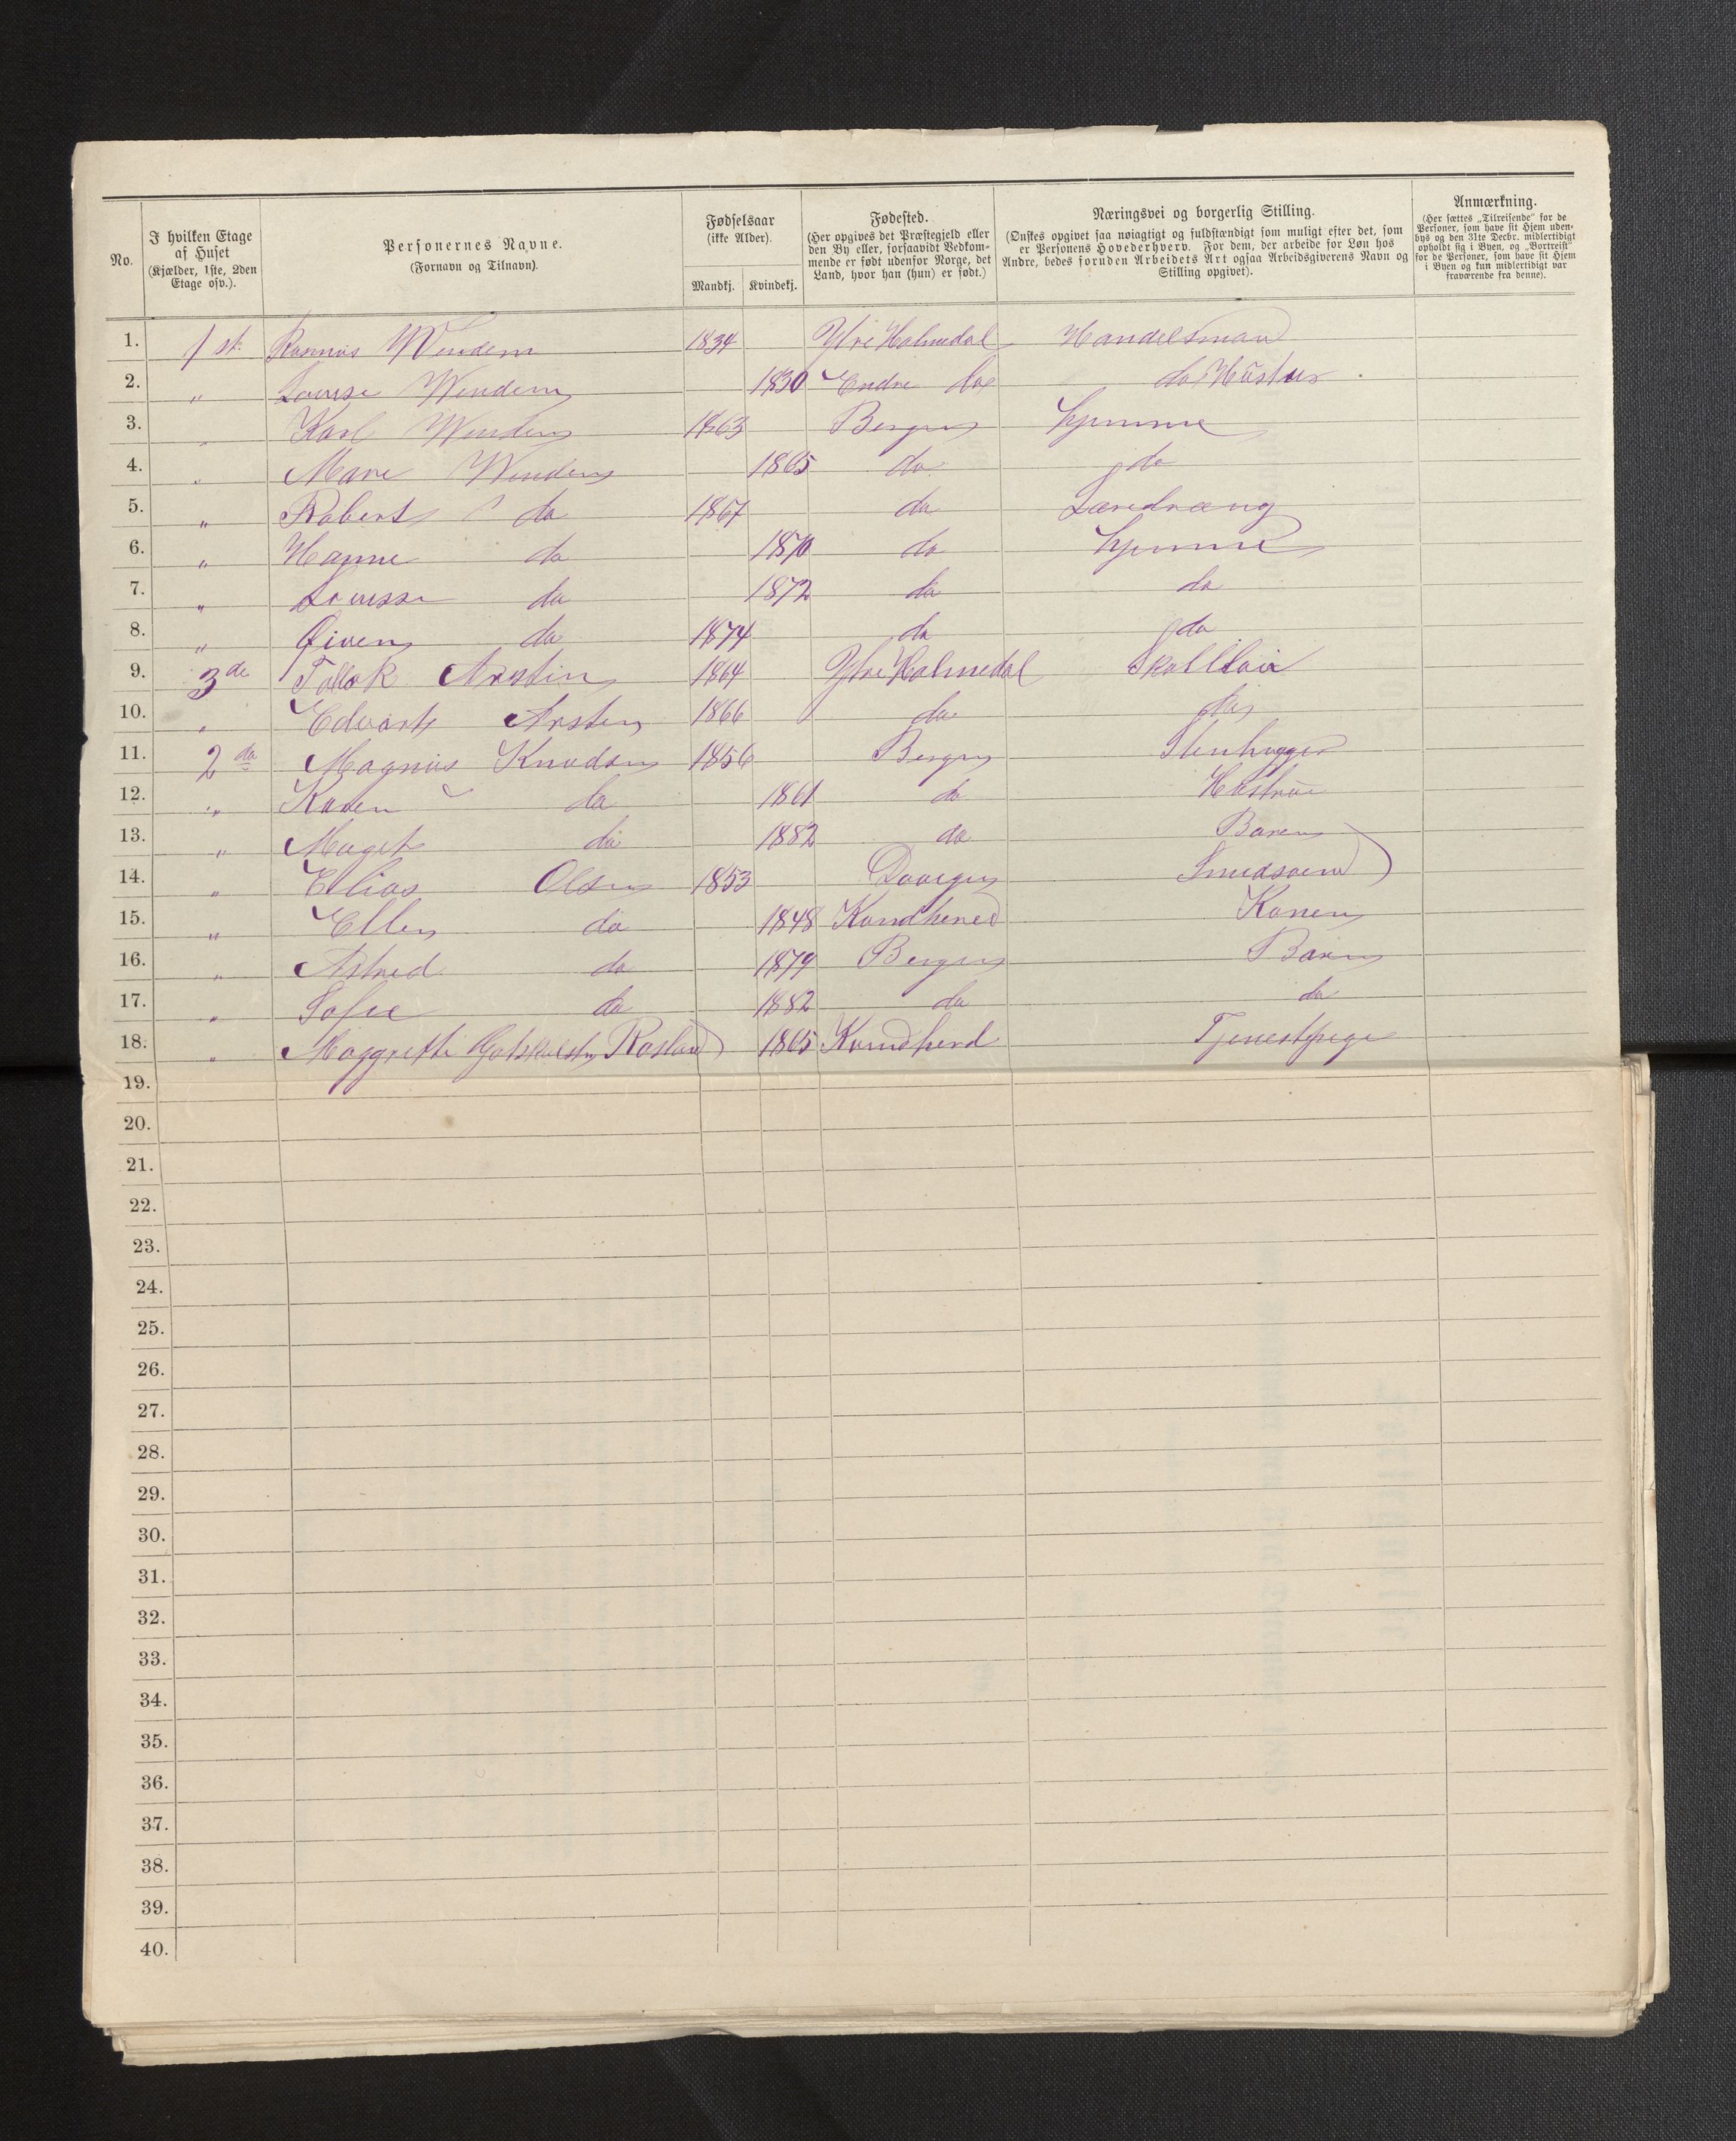 No.
I hvilken Etage af Huset (Kjælder, 1ste, 2den Etage osv.).
Personernes Navne. (Fornavn og Tilnavn).
Fødselsaar (ikke Alder).
Mandkj. Kvindekj.
Fødested. (Her opgives det Præstegjeld eller den By eller, forsaavidt Vedkommende er født udenfor Norge, det Land, hvor han (hun) er født.)
Næringsvei og borgerlig Stilling. (Ønskes opgivet saa nøiagtigt og fuldstændigt som muligt efter det, som er Personens Hovederhverv. For dem, der arbeide for Løn hos Andre, bedes foruden Arbeidets Art ogsaa Arbeidsgiverens Navn og Stilling opgivet).
Anmærkning. (Her sættes „Tilreisende“ for de Personer, som have sit Hjem udenbys og den 31te Decbr. midlertidigt opholdt sig i Byen, og „Bortreist“ for de Personer, som have sit Hjem i Byen og kun midlertidigt var fraværende fra denne).
1. 1 st. Rasmus Windem 1834 Ytre Holmedal Handelsman
2. " Lovise Windem 1830 Endre do do Hustru
3. " Karl Winden 1863 Bergen hjemme
4. " Marie Winden 1865 do do
5. " Robert do 1867 do Læredræng
6. " Hanne do 1870 do hjemme
7. " Lovisse do 1872 do do
8. " do 1874 do do
9. 3de 1864 Ytre Holmedal
10. " Edvart 1866 do do
11. 2de Magnus Knudsen 1856 Bergen Stenhugger
12. " Karen do 1861 do Hustrue
13. " Maget do 1882 do Baren
14. " Elias Olsen 1853 Smedsvend
15. " Ellen do 1848 Konen
16. " Astrid do 1879 Bergen Baren
17. " Sofie do 1882 do do
18. " Maggrethe Rosland 1865 Kvindherd Tjenestpige
19.
20.
21.
22.
23.
24.
25.
26.
27.
28.
29.
30.
31.
32.
33.
34.
35.
36.
37.
38.
39.
40.